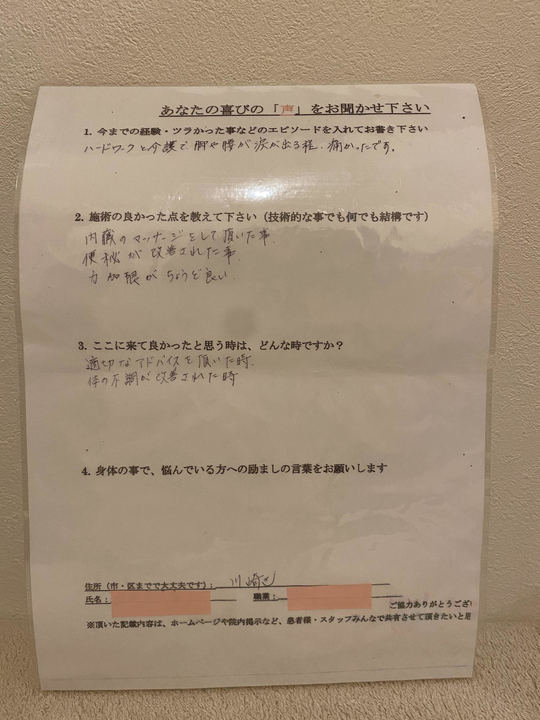 あなたの喜びの「声」をお聞かせ下さい
1. 今までの経験・ツラかった事などのエピソードを入れてお書き下さい
ハードワークと介護で脚や腰が涙が出る程、痛かったです。
2. 施術の良かった点を教えて下さい（技術的な事でも何でも結構です）
内臓のマッサージをして頂いた事、
便秘が改善された事、
力加減がちょうど良い、
3. ここに来て良かったと思う時は、どんな時ですか？
適切なアドバイスを頂いた時、
体の不調が改善された時
4. 身体の事で、悩んでいる方への励ましの言葉をお願いします
住所（市・区までで大丈夫です）： 川崎区
氏名： 職業：
ご協力ありがとうござ
※頂いた記載内容は、ホームページや院内掲示など、患者様・スタッフみんなで共有させて頂きたいと思